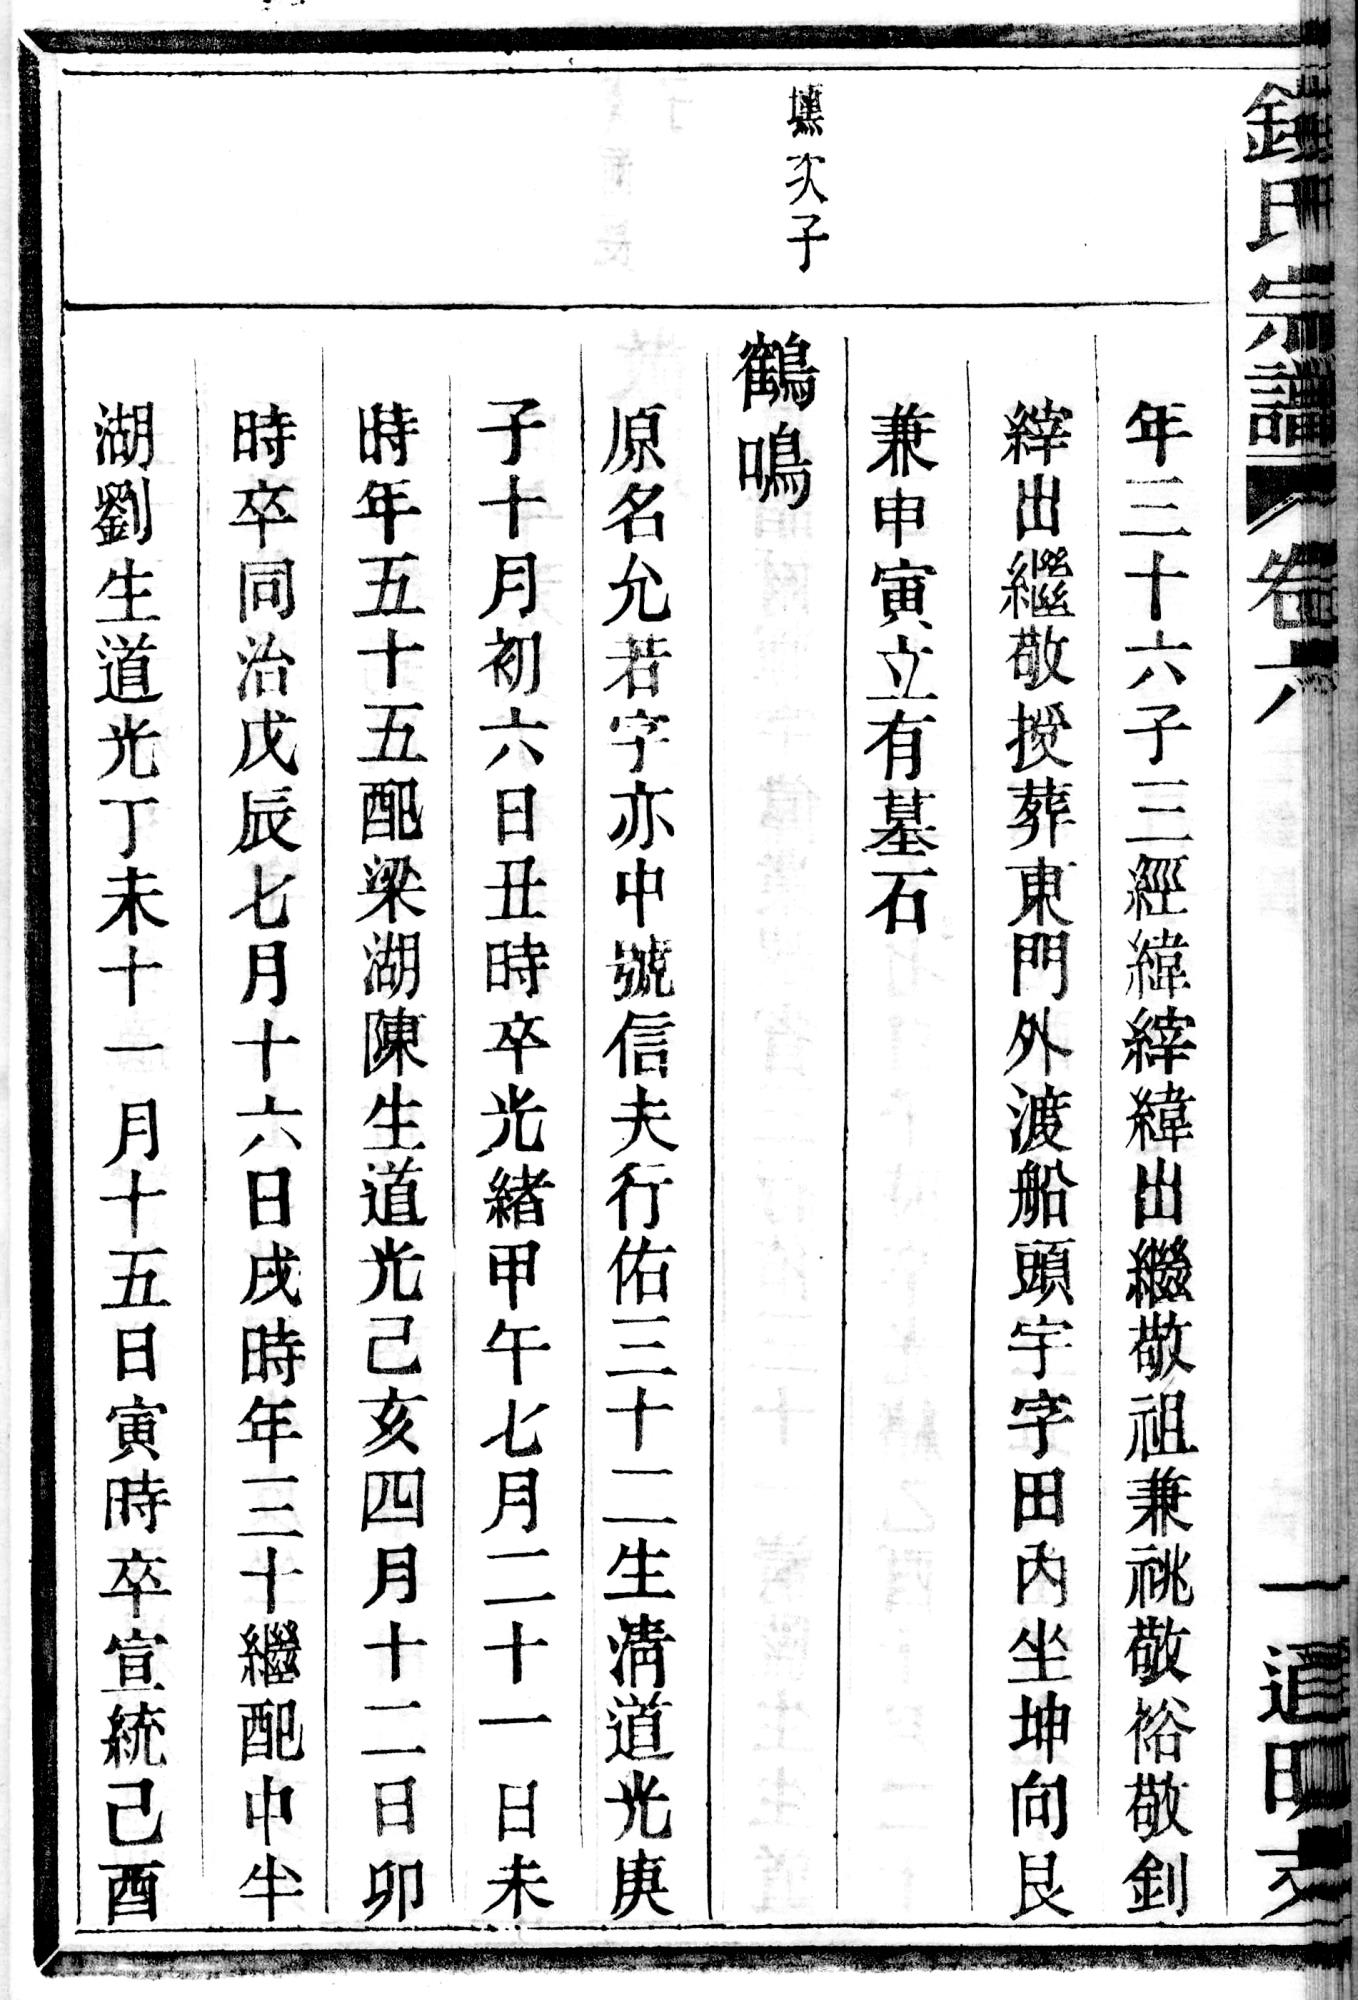 錢氏宗譜
卷六
一
道明支
年三十六子三經緯縡緯出繼敬祖兼祧敬裕敬釗
縡出繼敬授葬東門外渡船頭宇字田內坐坤向艮
兼申寅立有墓石
壎次子
鶴鳴
原名允若字亦中號信夫行佑三十二生淸道光庚
子十月初六日丑時卒光緖甲午七月二十一日未
時年五十五配梁湖陳生道光己亥四月十二日卯
時卒同治戊辰七月十六日戌時年三十繼配中半
湖劉生道光丁未十一月十五日寅時卒宣統己酉